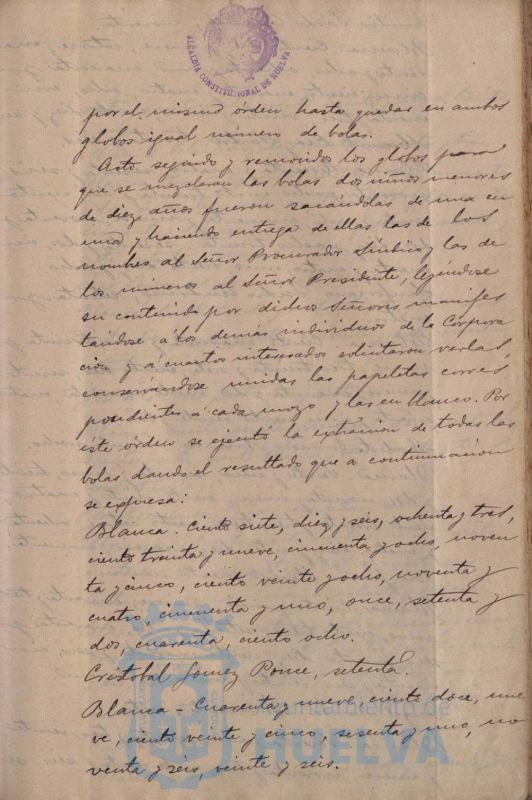 ALCALDIA CONSTITUCIONAL DE HUELVA
por el mismo órden hasta quedar en ambos
globos igual número de bolas.
Acto seguido y removidos los globos para
que se mezclaran las bolas dos niños menores
de diez años fueron sacándolas de una en
una y haciendo entrega de ellas las de los
nombres al Señor Procurador Síndico y las de
los números al Señor Presidente, leyéndose
su contenido por dichos Señores manifes
tándose á los demás individuos de la Corpora
ción y á cuantos interesados solicitaron verlas,
conservándose unidas las papeletas corres
pondientes á cada mozo y las en blanco. Por
éste órden se ejecutó la extraccion de todas las
bolas dando el resultado que á continuacion
se expresa:
Blanca. Ciento siete, diez y séis, ochenta y tres,
ciento treinta y nueve, cincuenta y ocho, noven
ta y cinco, ciento veinte y ocho, noventa y
cuatro, cincuenta y uno, once, setenta y
dos, cuarenta, ciento ocho.
Cristobal Gomez Ponce, setenta.
Blanca - Cuarenta y nueve, ciento doce, nue
ve, ciento veinte y cinco, sesenta y uno, no
venta y séis, veinte y séis.
Ayuntamiento de
HUELVA